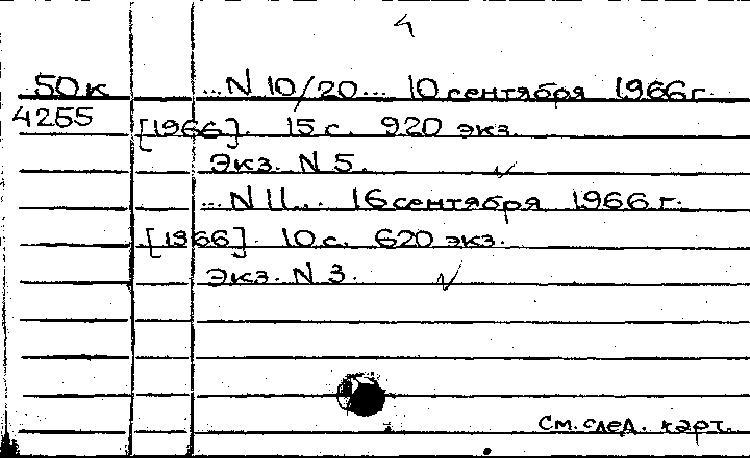 4
50к ...N 10/20... 10 сентября 1966г.
4255 [1966]. 15 с. 920 экз.
Экз. N 5.
...N 11... 16 сентября 1966 г.
[1966]. 10 с. 620 экз.
Экз. N 3.
см. след. карт.